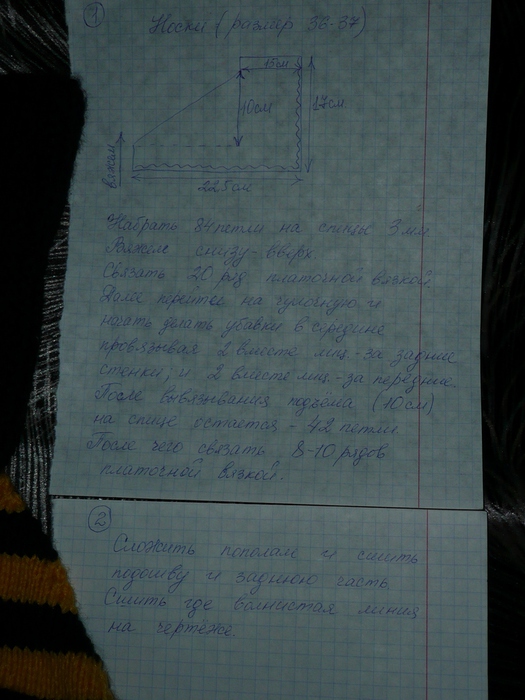 1
Носки (размер 36-37)
15см
10см
17см
вяжем
22.5см
Набрать 84 петли на спицы 3 мм
Вяжем снизу-вверх.
Связать 20 ряд платочной вязкой.
Далее перейти на чулочную и
начать делать убавки в середине
провязывая 2 вместе лиц.-за задние
стенки, и 2 вместе лиц.-за передние.
После вывязывания подъёма (10см)
на спице остаётся - 42 петли.
После чего связать 8-10 рядов
платочной вязкой.
2
Сложить пополам и сшить
подошву и заднюю часть.
Сшить где волнистая линия
на чертеже.